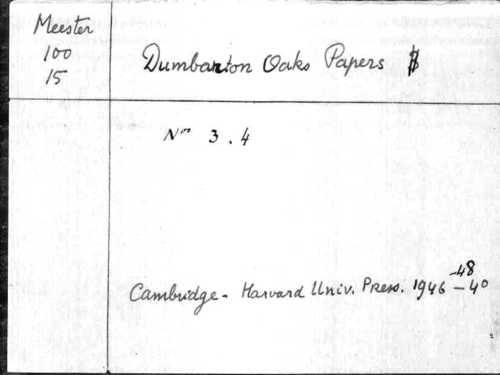 Meester
100
15
Dumbarton Oaks Papers
Nos 3. 4
-48
Cambridge - Harvard Univ. Press. 1946 - 40